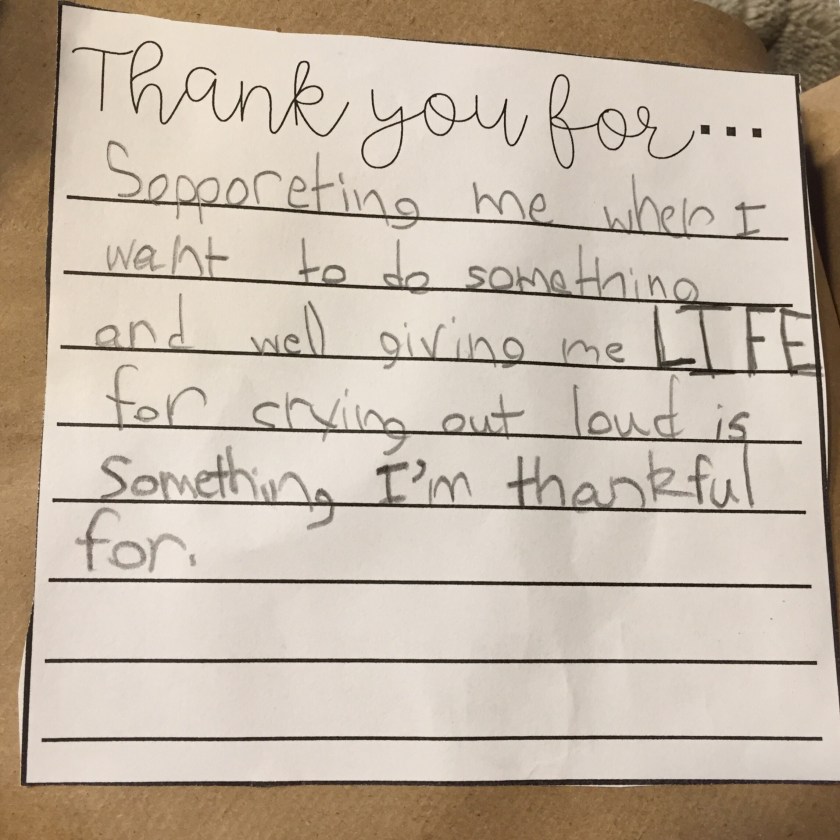 Thank you for...
Sopporeting me when I
want to do something
and well giving me LIFE
for crying out loud is
something I'm thankful
for.